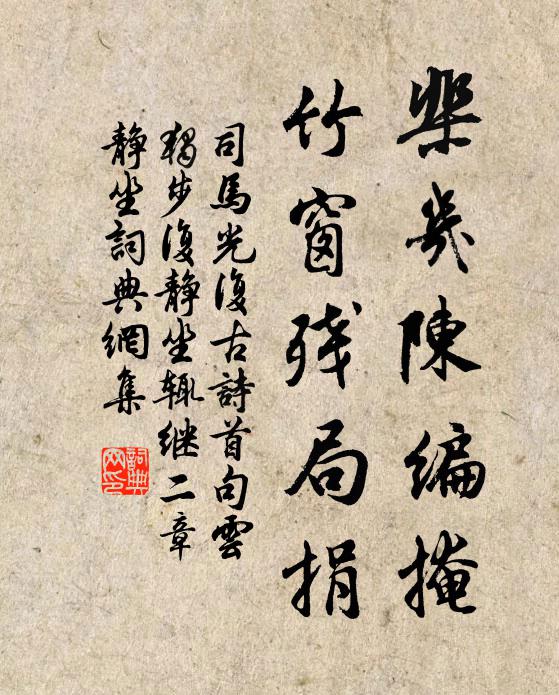 棐幾陳編掩
竹窗残局捐
司馬光復古詩首句雲
獨步復静坐辄继二章
静坐詞典網集
詞典网印